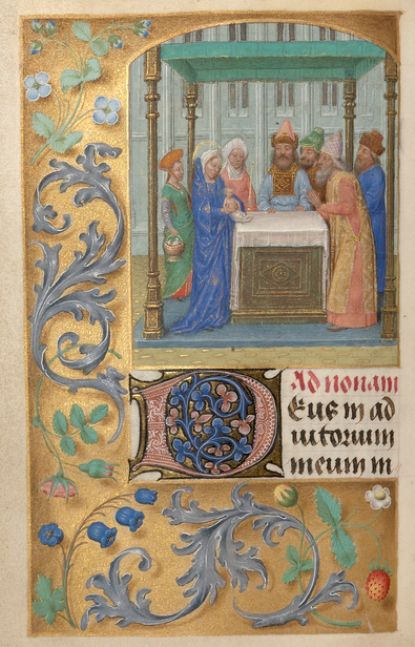 Ad nonam
Deus in ad
iutorium
meum in